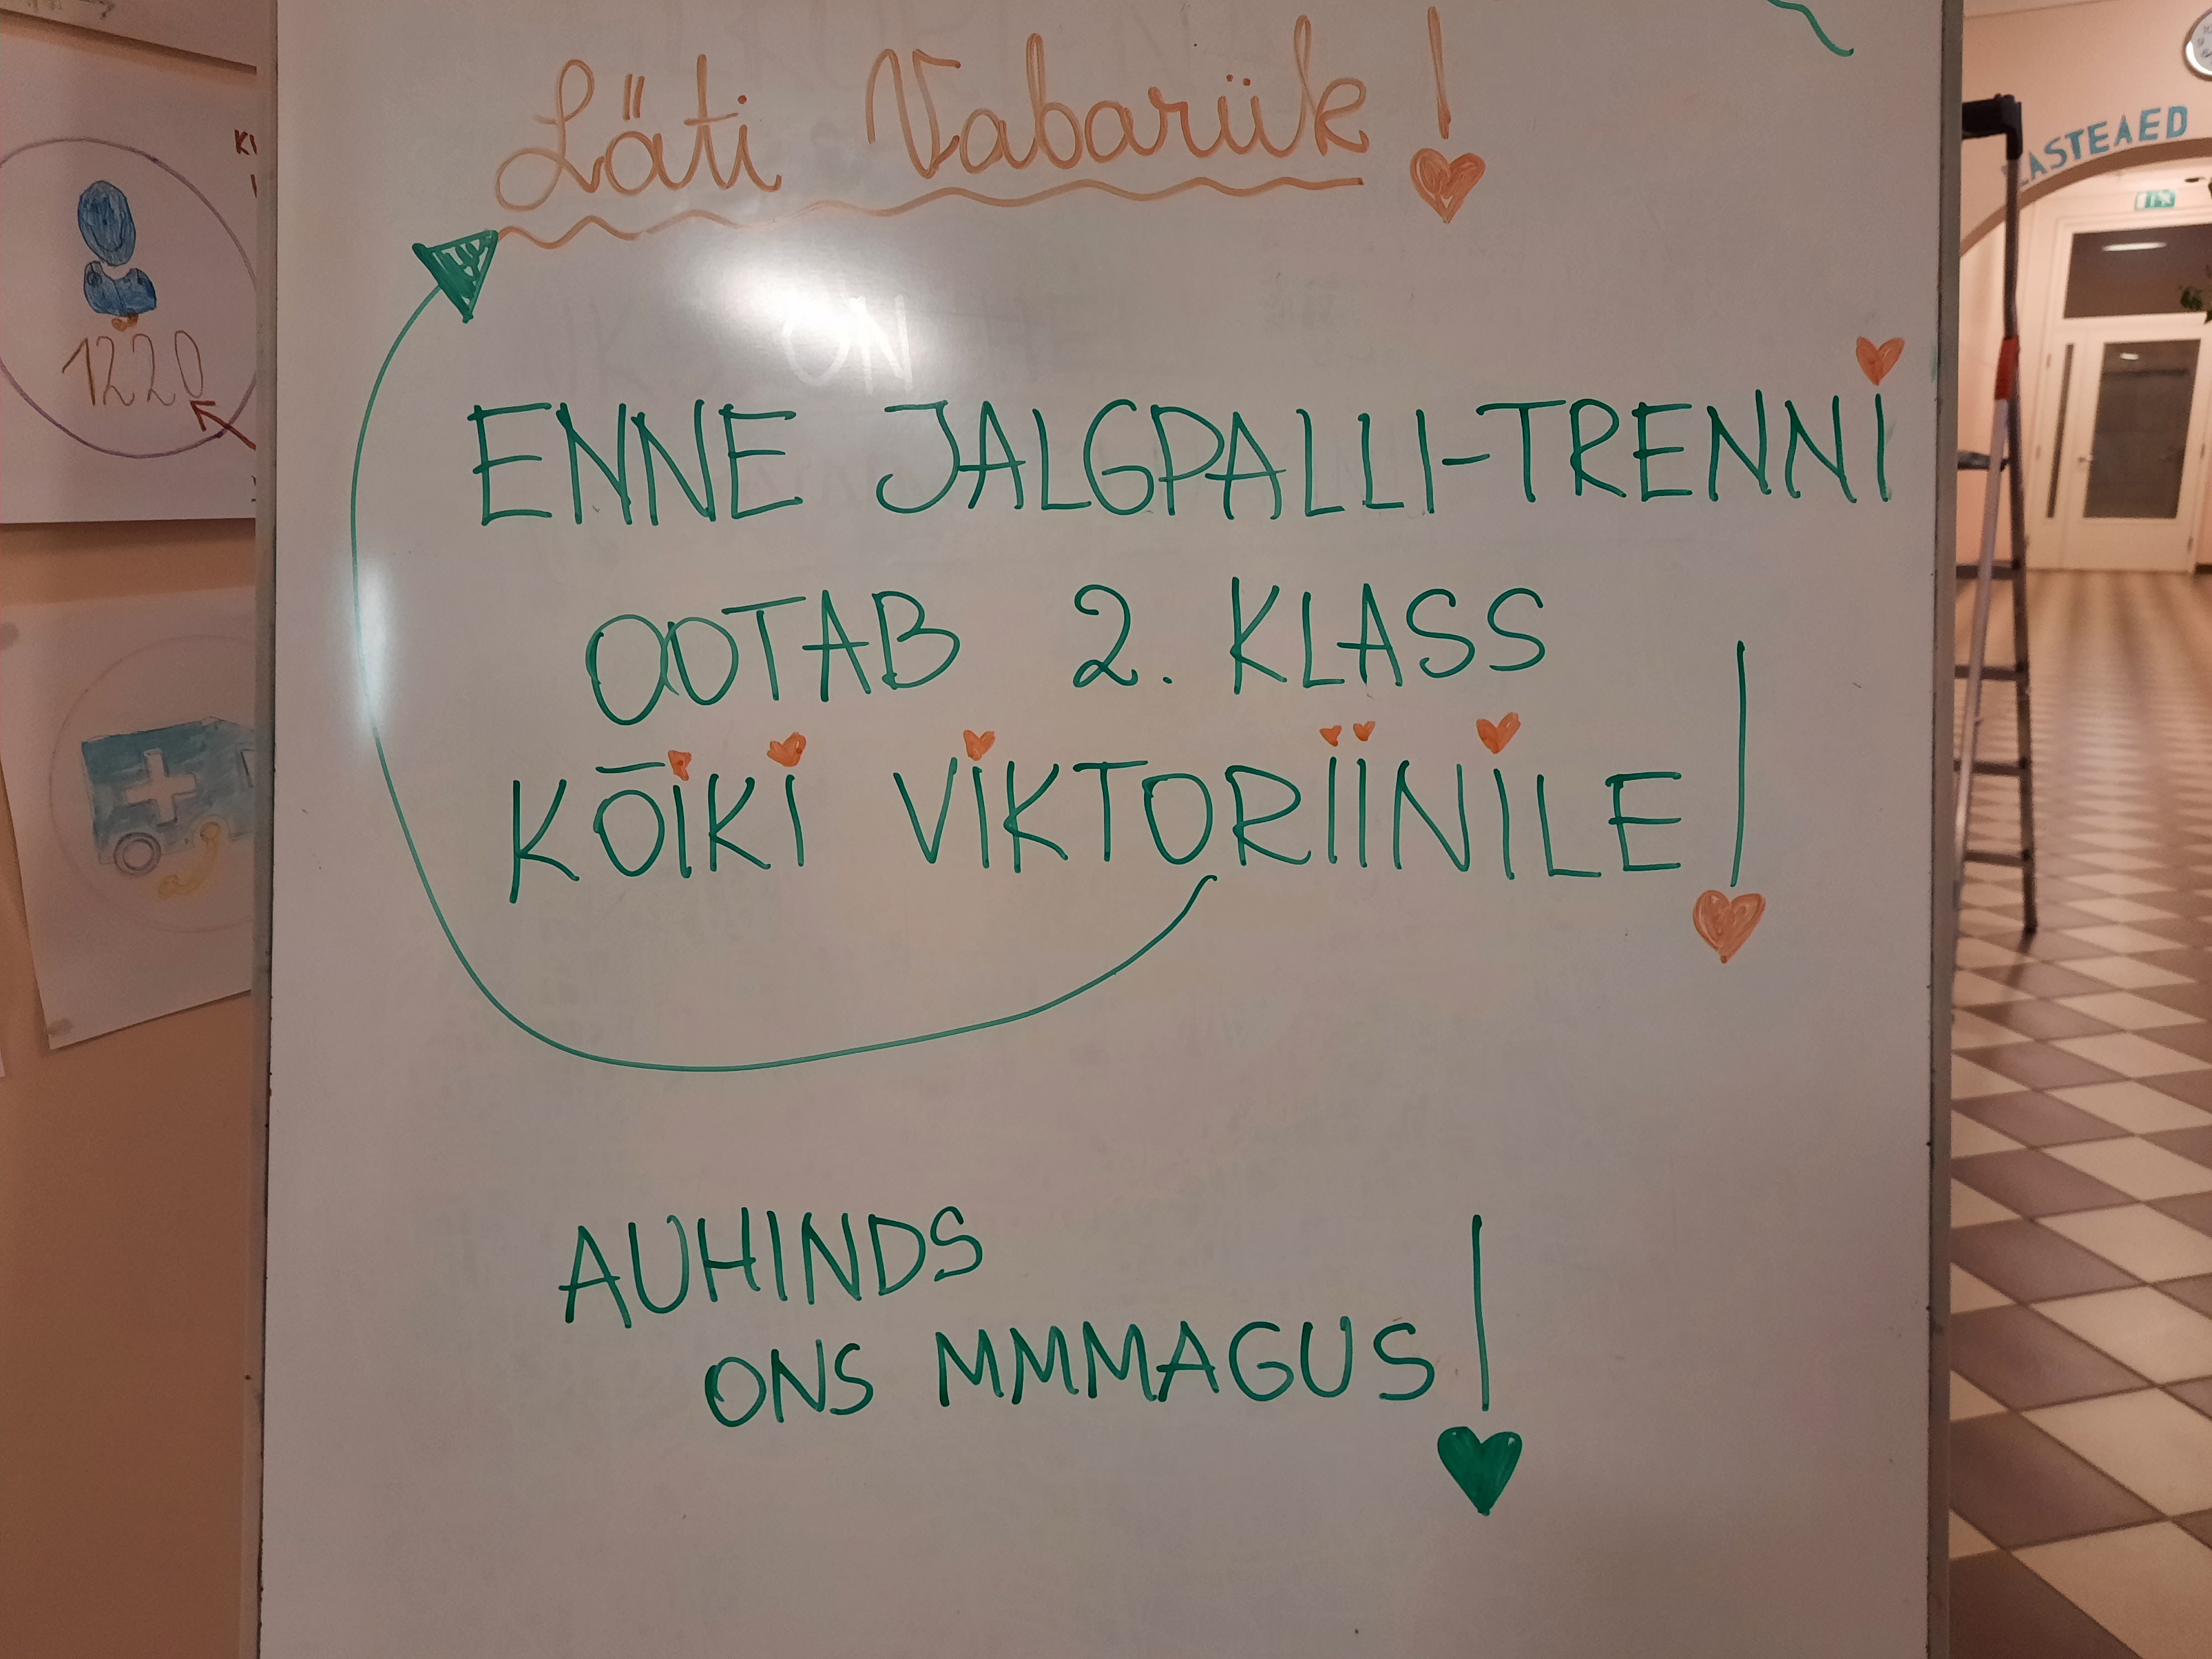 Läti Vabariik!
ENNE JALGPALLI-TRENNI
OOTAB 2. KLASS
KÕIKI VIKTORIINILE!
AUHINDS
ONS MMMAGUS!
1220
LASTEAED